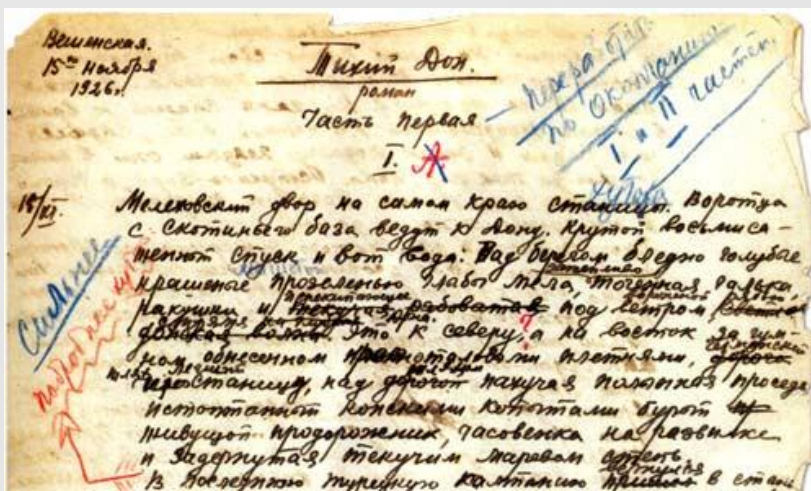 Вешенская.
15го Ноября
1926г.
Тихий Дон.
роман
Часть Первая
I. А
— переработать
по окончании
I и II частей.
хутора
15/XI. Мелеховский двор на самом краю станицы. Воротца
с скотиньего база ведут к Дону. Крутой восьмиса-
женный спуск и вот вода: Над берегом бледно голубые
крашеные прозеленью глыбы мела, точенная галька,
ракушки и перекипающее под ветром
донская волна. Это к северу, а на восток за гум-
ном, обнесенном плетнями,
над пахучая полынная проседь
истоптанный конскими копытами бурый
живущой придорожник, часовенка на развилке
и задернутая текучим маревом степь
вернулся
В последнюю турецкую кампанию пришел в стан
Сильнее
подробнее